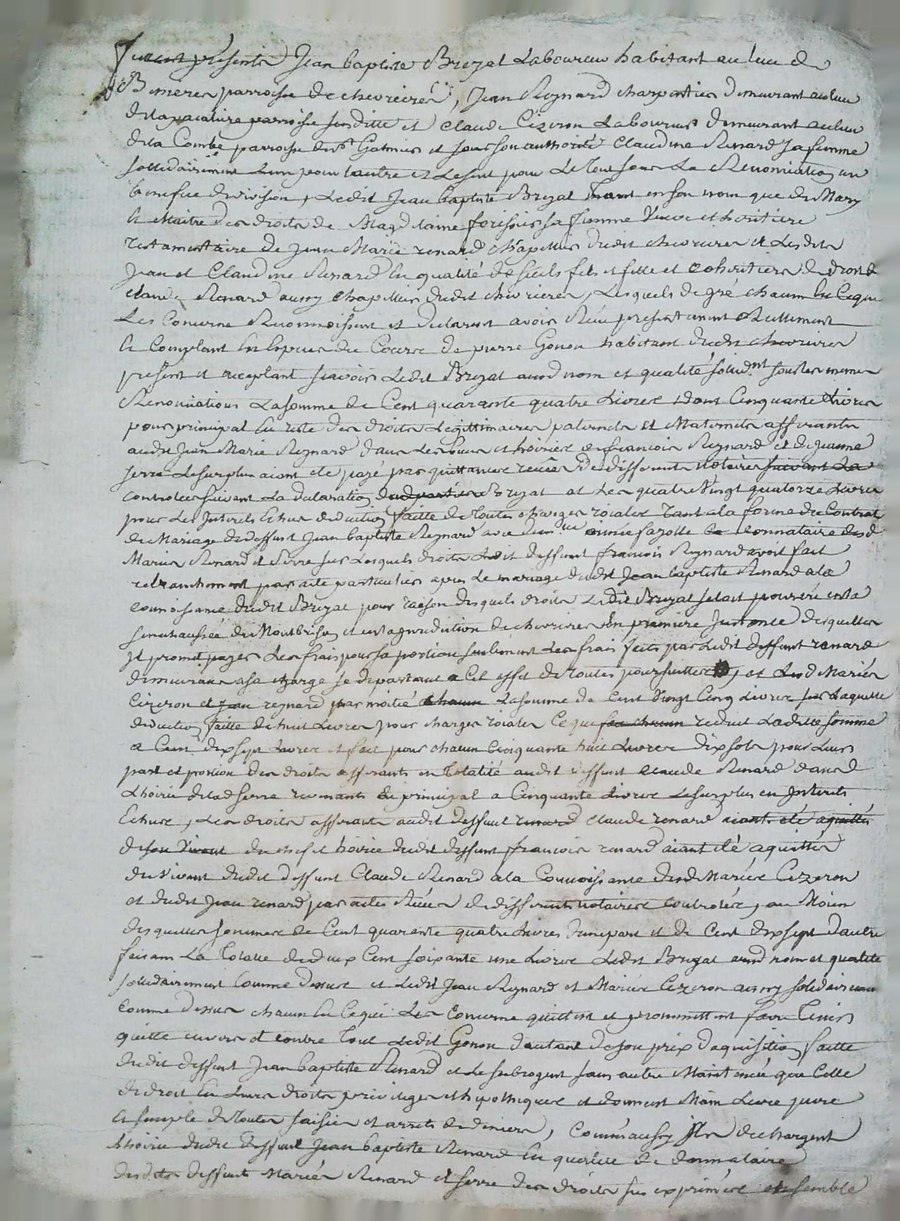 furent présents Jean baptiste Bruyat Laboureur habitant au lieu de
parroisse de chevrieres, Jean Reynard charpentier demeurant au lieu
de parroisse susditte et Claude Cizeron Laboureur demeurant au lieu
de la Combe parroisse de St Galmier et sous son authorité Claudine Renard sa femme
solidairement l'un pour l'autre et Le seul pour Le Tout sous La Renonciation au
benefice de division, Ledit Jean baptiste Bruyat tant en son nom que de Mary
et Maitre des droits de Magdelaine sa femme veuve et heritiere
testamentaire de Jean Marie renard chapellier dudit chevrieres et Lesdits
Jean et Claudine Renard en qualité de seuls fils et fille et coheritiers de droit de
Claude Renard aussy chapellier dudit chevrieres, Lesquels de gré chacun en ce qui
Les Concerne Reconnoissent et declarent avoir Reçu presentement et reellement
et Comptant en Especes de Cours de pierre Gonon habitant dudit chevrieres
present et acceptant scavoir Ledit Bruyat aud nom et qualité solidment sous les memes
Renonciations La somme de Cent quarante quatre Livres dont Cinquante Livres
pour principal en reste des droits Legittimaires paternels et Maternels afferants
audit Jean Marie Reynard dans Les et hoirie de francois Reynard et de jeanne
serre Le surplus aiant été payé par quittances recües de differents Notaires suivant La
controllées suivant La declaration dudit Bruyat et Les quatre Vingt quatorze Livres
pour Les Interets Echus deduction faitte de Toutes charges roiales Tant a la forme du Contrat
de Mariage du deffunt Jean baptiste Reynard avec donnataire desd
Mariés Renard et Serre sur Lesquels droits Ledit deffunt francois Reynard avoit fait
retranchement par acte particulier apres Le mariage dudit Jean baptiste Renard a la
connoissance dudit Bruyat pour raison desquels droits Ledit Bruyat s'etoit pourvu en la
senechaussée de Montbrison et en la jurisdiction de chevrieres En premiere Instance desquelles
Jl promet payer Les frais pour sa portion seulement Les frais faits par Ledit deffunt renard
demeurant a sa charge se departant a Cet effet de Toutes poursuittes, et Lesd Mariés
Cizeron et jean reynard par moitié chacun La somme de Cent Vingt Cinq Livres sur Laquelle
deduction faitte de huit Livres pour charges roiales Ce qui reduit Laditte somme
a Cent dix sept Livres et fait pour chacun Cinquante huit Livres dix sols pour Leurs
part et portion des droits afferants en Totalité audit deffunt claude Renard dans
L'hoirie de lad Serre revenants de principal a Cinquante Livres Le surplus en Interets
Echus, Les droits afferants audit deffunt renard claude renard aiant été aquittés
de son Vivant du chef et hoirie dudit deffunt francois renard aiant été aquittés
du Vivant dudit deffunt Claude Renard a la Connoissance desd Mariés Cizeron
et dudit Jean renard par actes Reçus de differents notaires controlés, au Moien
desquelles sommes de Cent quarante quatre Livres d'une part et de Cent dix sept d'autre
faisant La Totalle de deux Cent soixante une Livres Ledit Bruyat aud nom et qualité
solidairement Comme dessus et Ledit Jean Reynard et Mariés Cizeron aussy solidairement
comme dessus chacun en Ce qui Les Concerne quittent et promettent faire Tenir
quitte envers et Contre Tout Ledit Gonon d'autant de son prix d'aquisition faitte
dudit deffunt Jean baptiste Renard et Le subrogent sans autre Maintenue que Celle
de droit en Leurs droits privileges et hipotheques et donnent Main Levée pure
et simple de Toutes saisies et arrets de deniers, Comme aussy Jls dechargent
L'hoirie dudit deffunt Jean baptiste Renard en qualité de donnataire
desdits deffunts Mariés Renard et serre des droits sus exprimés ensemble